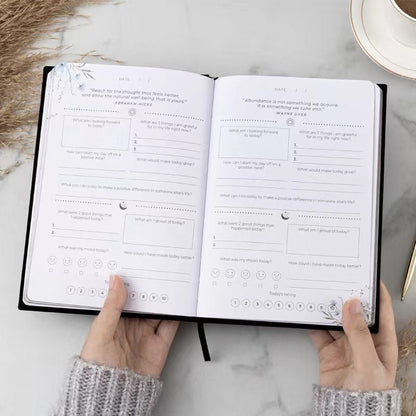 DATE / /
"Reach for the thought that feels better,
and allow the natural well-being that is yours."
-ABRAHAM HICKS
What am I looking forward
to today?
What are 3 things I am grate-
ful for in my life right now?
1.
2.
3.
How can I start my day off on a
positive note?
What would make today great?
What can I do today to make a positive difference in someone else's life?
What were 2 good things that
happened today?
1.
2.
What am I proud of today?
What was my mood today?
How could I have made today better?
Today's rating
1 2 3 9 10
DATE / /
"Abundance is not something we acquire.
It is something we tune into."
-WAYNE DYER
What am I looking forward to today?
What are 3 things I am grateful
for in my life right now?
1.
2.
3.
How can I start my day off on a
positive note?
What would make today great?
What can I do today to make a positive difference in someone else's life?
What were 2 good things that
happened today?
1.
2.
What am I proud of today?
What was my mood today?
How could I have made today better?
Today's rating
1 2 3 4 5 6 7 8 9 10